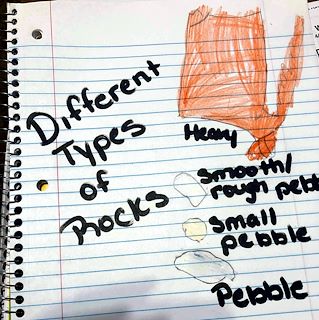 Different
Types
of
Rocks
Heavy
Smooth/
rough pebb
Small
pebble
Pebble